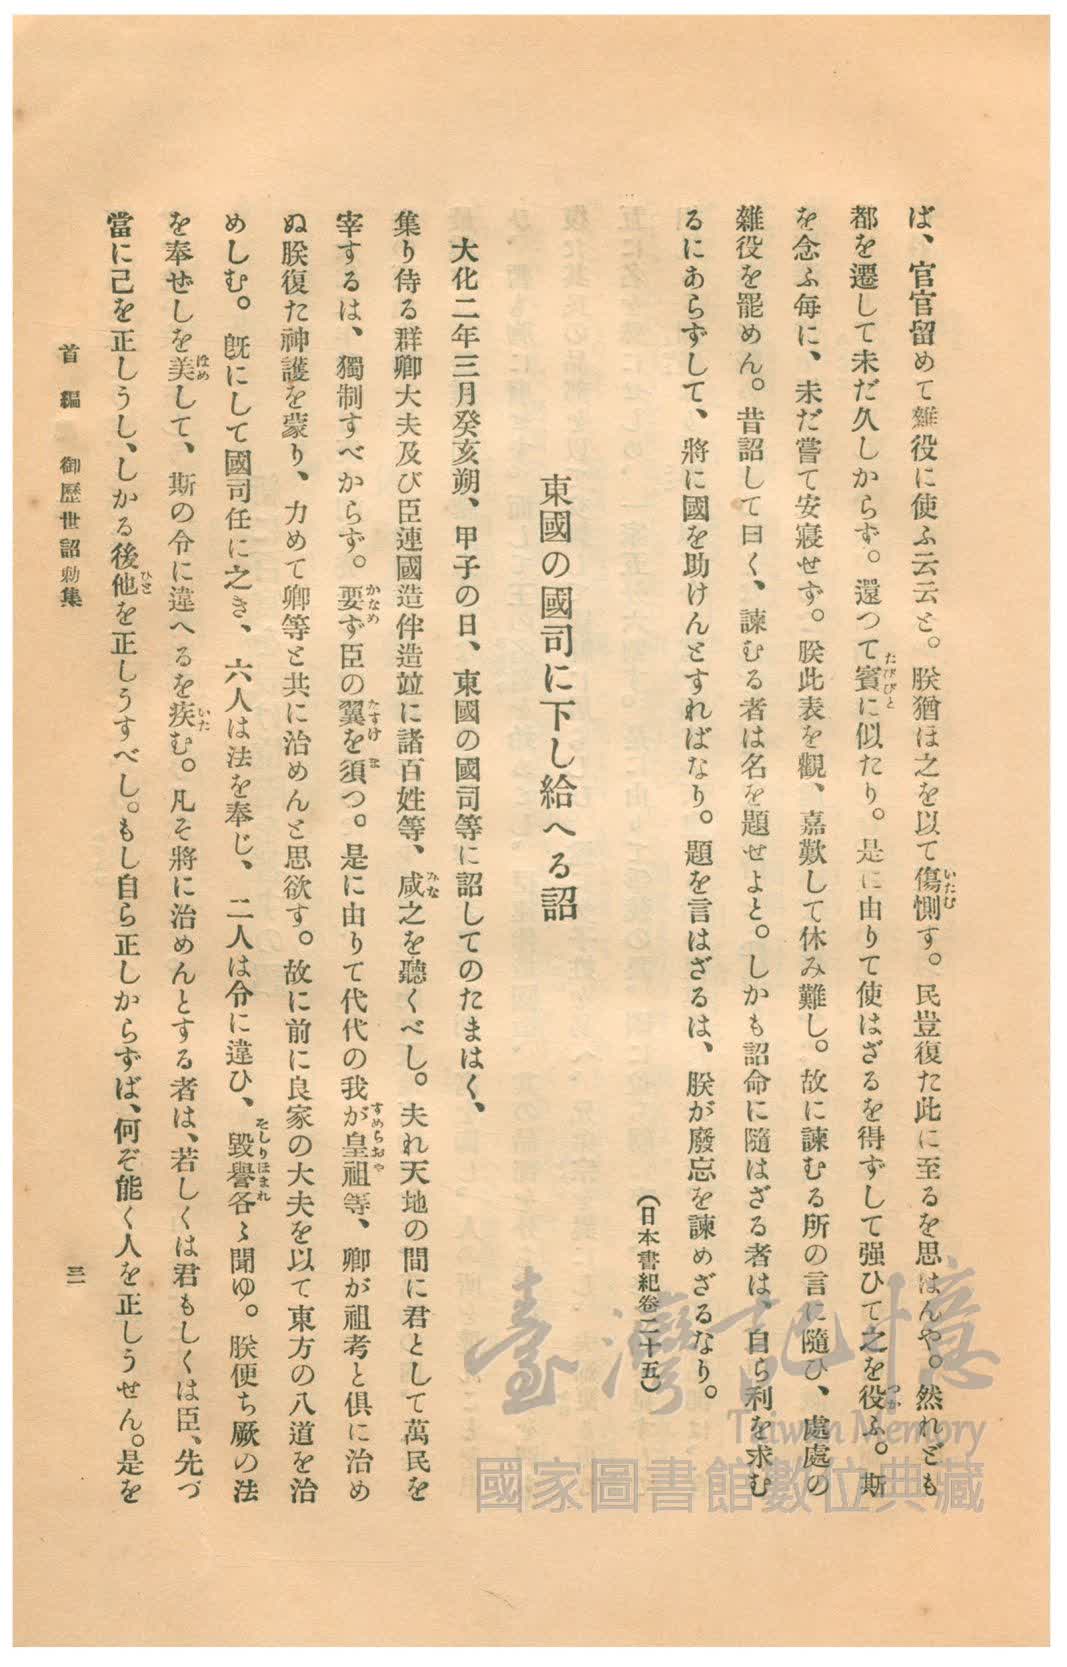 ば、官官留めて雜役に使ふ云云と。朕猶ほ之を以て傷惻す。民豈復た此に至るを思はんや。然れども
都を遷して未だ久しからず。還つて賓に似たり。是に由りて使はざるを得ずして强ひて之を役ふ。斯
を念ふ每に、未だ嘗て安寢せず。朕此表を觀、嘉歎して休み難し。故に諫むる所の言に隨ひ、處處の
雜役を罷めん。昔詔して曰く、諫むる者は名を題せよと。しかも詔命に隨はざる者は、自ら利を求む
るにあらずして、將に國を助けんとすればなり。題を言はざるは、朕が廢忘を諫めざるなり。
(日本書紀卷二十五)
東國の國司に下し給へる詔
大化二年三月癸亥朔、甲子の日、東國の國司等に詔してのたまはく、
集り侍る群卿大夫及び臣連國造伴造竝に諸百姓等、咸之を聽くべし。夫れ天地の間に君として萬民を
宰するは、獨制すべからず。要ず臣の翼を須つ。是に由りて代代の我が皇祖等、卿が祖考と俱に治め
ぬ朕復た神護を蒙り、力めて卿等と共に治めんと思欲す。故に前に良家の大夫を以て東方の八道を治
めしむ。既にして國司任に之き、六人は法を奉じ、二人は令に違ひ、毀譽各〻聞ゆ。朕便ち厥の法
を奉ぜしを美して、斯の令に違へるを疾む。凡そ將に治めんとする者は、若しくは君もしくは臣、先づ
當に己を正しうし、しかる後他を正しうすべし。もし自ら正しからずば、何ぞ能く人を正しうせん。是を
首編 御歷世詔勅集
三一
臺灣記憶
Taiwan Memory
國家圖書館數位典藏